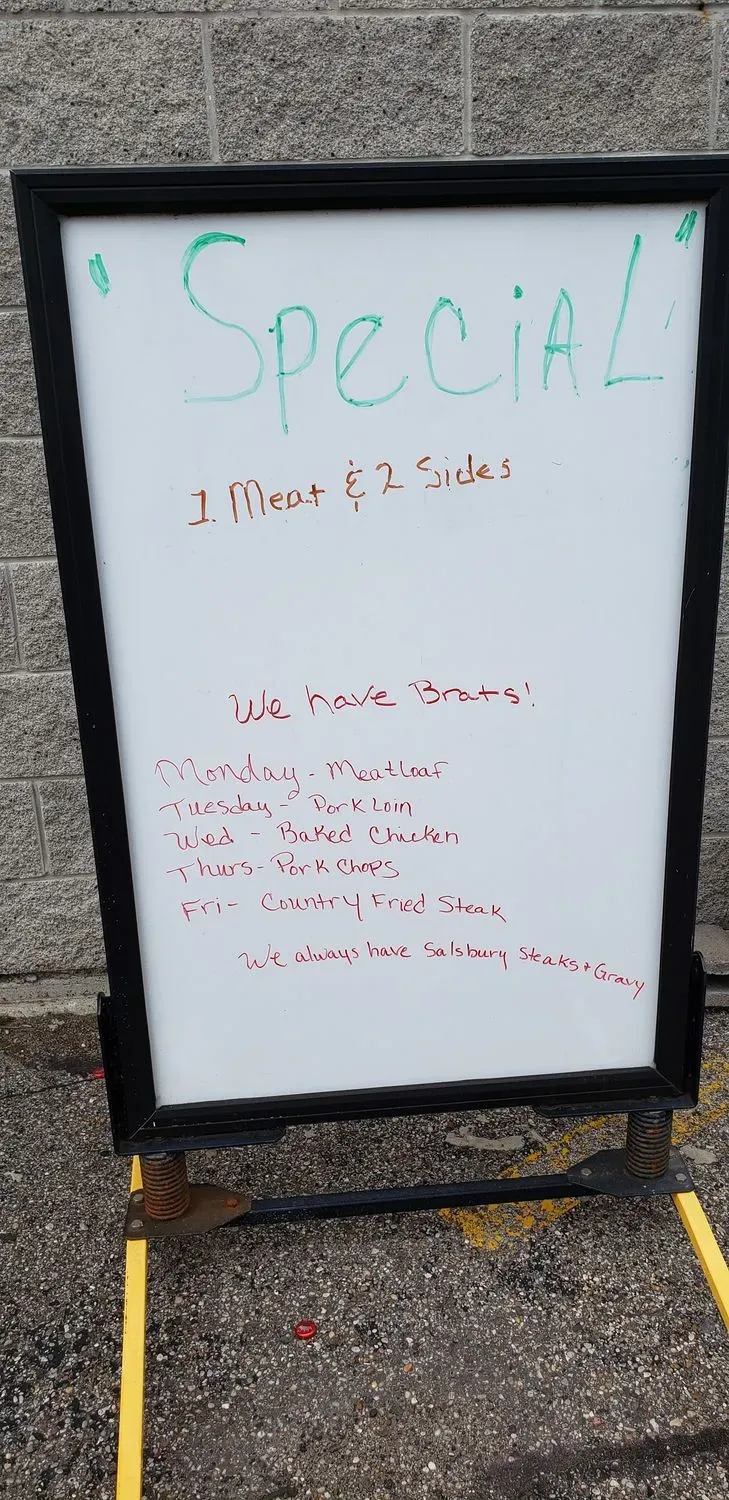 "Special"
1 Meat & 2 Sides
We have Brats!
Monday - Meatloaf
Tuesday - Pork Loin
Wed - Baked Chicken
Thurs - Pork Chops
Fri - Country Fried Steak
We always have Salsbury Steaks + Gravy